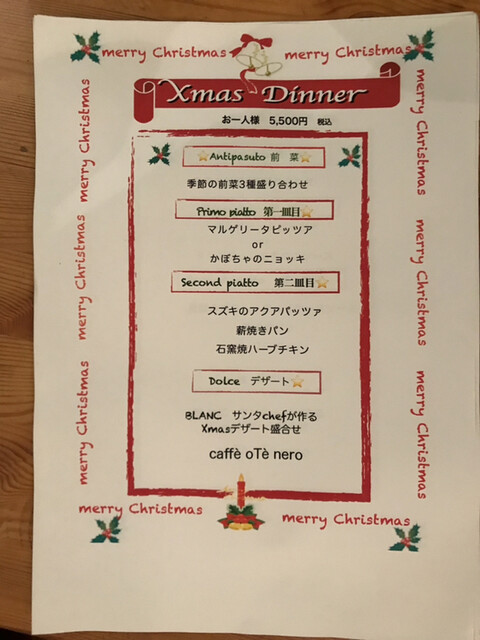 merry Christmas
merry Christmas
Xmas Dinner
お一人様 5,500円 税込
Antipasuto 前 菜
季節の前菜3種盛り合わせ
Primo piatto 第一皿目
マルゲリータピッツア
or
かぼちゃのニョッキ
Second piatto 第二皿目
スズキのアクアパッツァ
薪焼きパン
石窯焼ハーブチキン
Dolce デザート
BLANC サンタchefが作る
Xmasデザート盛合せ
caffè oTè nero
merry Christmas
merry Christmas
merry Christmas
merry Christmas
merry Christmas
merry Christmas
merry Christmas
merry Christmas